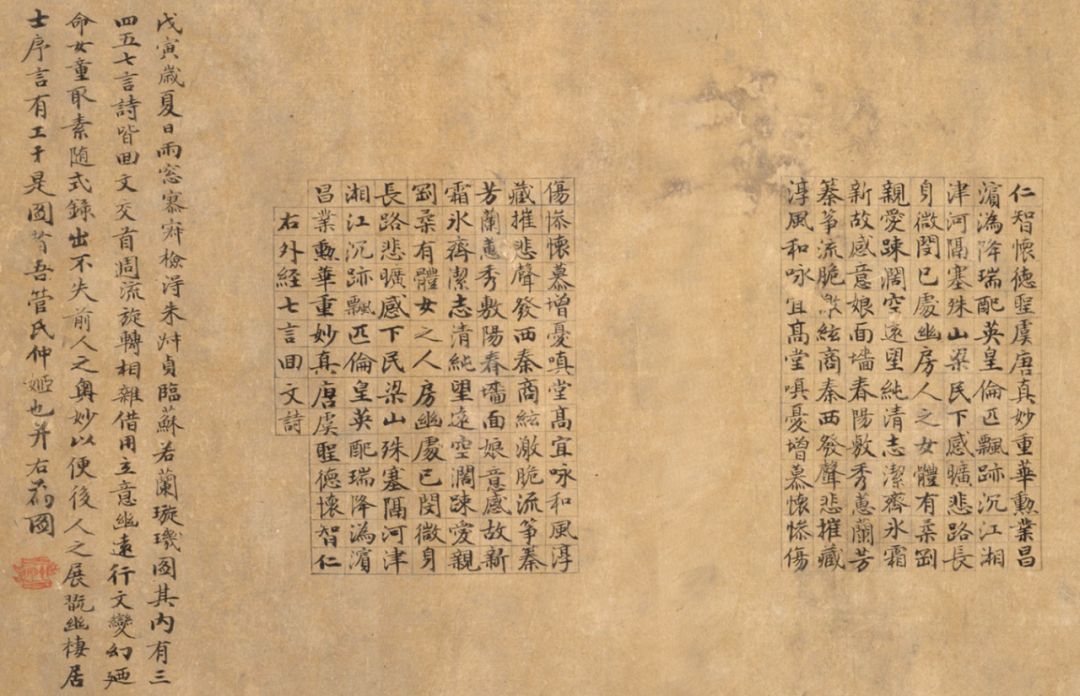 仁智懷德聖虞唐真妙重華勳業昌
濵為降瑞配英皇倫匹飄跡沉江湘
津河隔塞殊山梁民下感曠悲路長
身微閔已處幽房人之女體有柔剛
親愛踈闊空遠望純清志潔齊氷霜
新故感意娘面墻春陽敷秀蕙蘭芳
蓁箏流脆激絃商秦西發聲悲摧藏
淳風和咏宜高堂嗔憂增慕懷慘傷
傷慘懷慕增憂嗔堂高宜咏和風淳
藏摧悲聲發西秦商絃激脆流箏蓁
芳蘭蕙秀敷陽春墻面娘意感故新
霜氷齊潔志清純望遠空闊踈愛親
剛柔有體女之人房幽處已閔微身
長路悲曠感下民梁山殊塞隔河津
湘江沉跡飄匹倫皇英配瑞降為濵
昌業勳華重妙真唐虞聖德懷智仁
右外経七言回文詩
戊寅歲夏日雨窓寡寂檢得朱艸貞臨蘇若蘭璇璣圖其内有三
四五七言詩皆回文交首週流旋轉相雜借用立意幽遠行文變幻廼
命女童取素随式錄出不失前人之奥妙以便後人之展翫幽棲居
士序言有工于是圖者吾管氏仲姬也并右圖